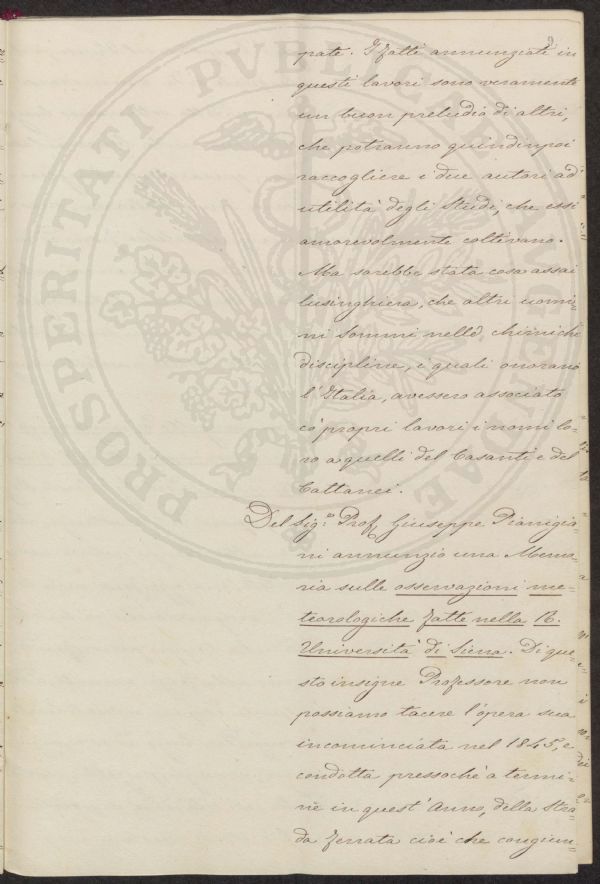 9
pate. I fatti annunziati in
questi lavori sono veramente
un buon preludio di altri,
che potranno quindinpoi
raccogliere i due autori ad
utilità degli Studi, che essi
amorevolmente coltivano.
Ma sarebbe stata cosa assai
lusinghiera, che altri uomi
ni sommi nelle chimiche
discipline, i quali onorano
l'Italia, avessero associato
co' propri lavori i nomi lo-
ro a quelli del Casanti e del
Cattanei.
Del Sig.r Prof. Giuseppe Pianigia-
ni annunzio una Memo-
ria sulle osservazioni me-
teorologiche fatte nella R.
Università di Siena. Di que-
sto insigne Professore non
possiamo tacere l'opera sua
incominciata nel 1845, e
condotta pressochè a termi-
ne in quest'Anno, della Stra-
da ferrata cioè che congiun-
PROSPERITATI PVBLICAE AVGENDAE